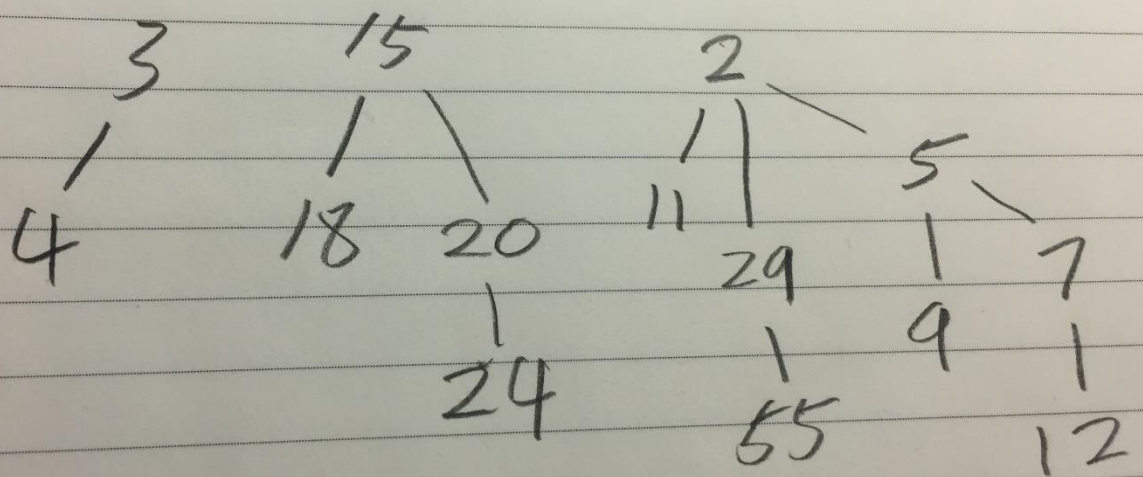 3 15 2
5
4 18 20 11
29 7
9
24
55 12